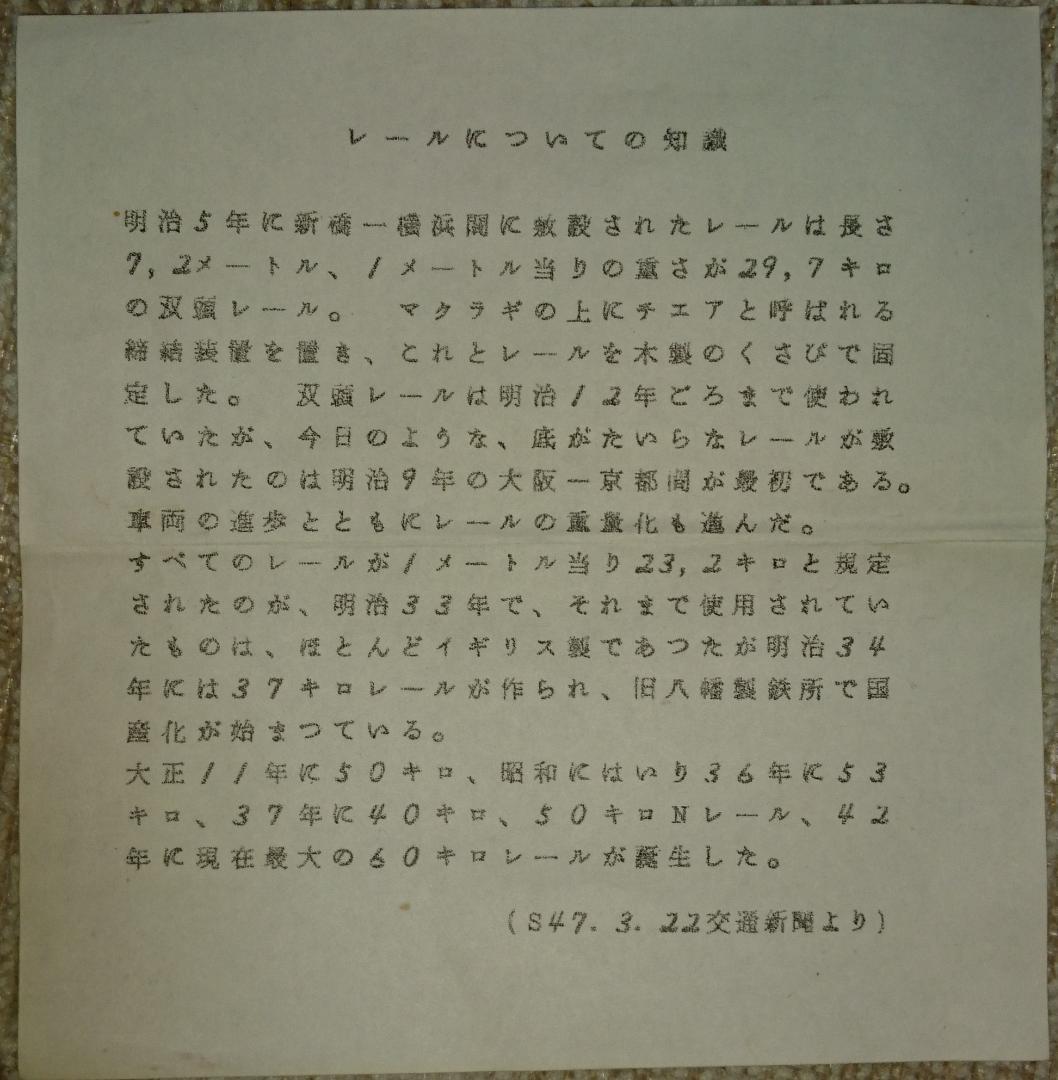 レールについての知識
明治5年に新橋ー横浜間に敷設されたレールは長さ
7,2メートル、1メートル当りの重さが29,7キロ
の双頭レール。 マクラギの上にチエアと呼ばれる
締結装置を置き、これとレールを木製のくさびで固
定した。 双頭レールは明治12年ごろまで使われ
ていたが、今日のような、底がたいらなレールが敷
設されたのは明治9年の大阪ー京都間が最初である。
車両の進歩とともにレールの重量化も進んだ。
すべてのレールが1メートル当り23,2キロと規定
されたのが、明治33年で、それまで使用されてい
たものは、ほとんどイギリス製であつたが明治34
年には37キロレールが作られ、旧八幡製鉄所で国
産化が始まつている。
大正11年に50キロ、昭和にはいり36年に53
キロ、37年に40キロ、50キロNレール、42
年に現在最大の60キロレールが誕生した。
(S47.3.22交通新聞より)